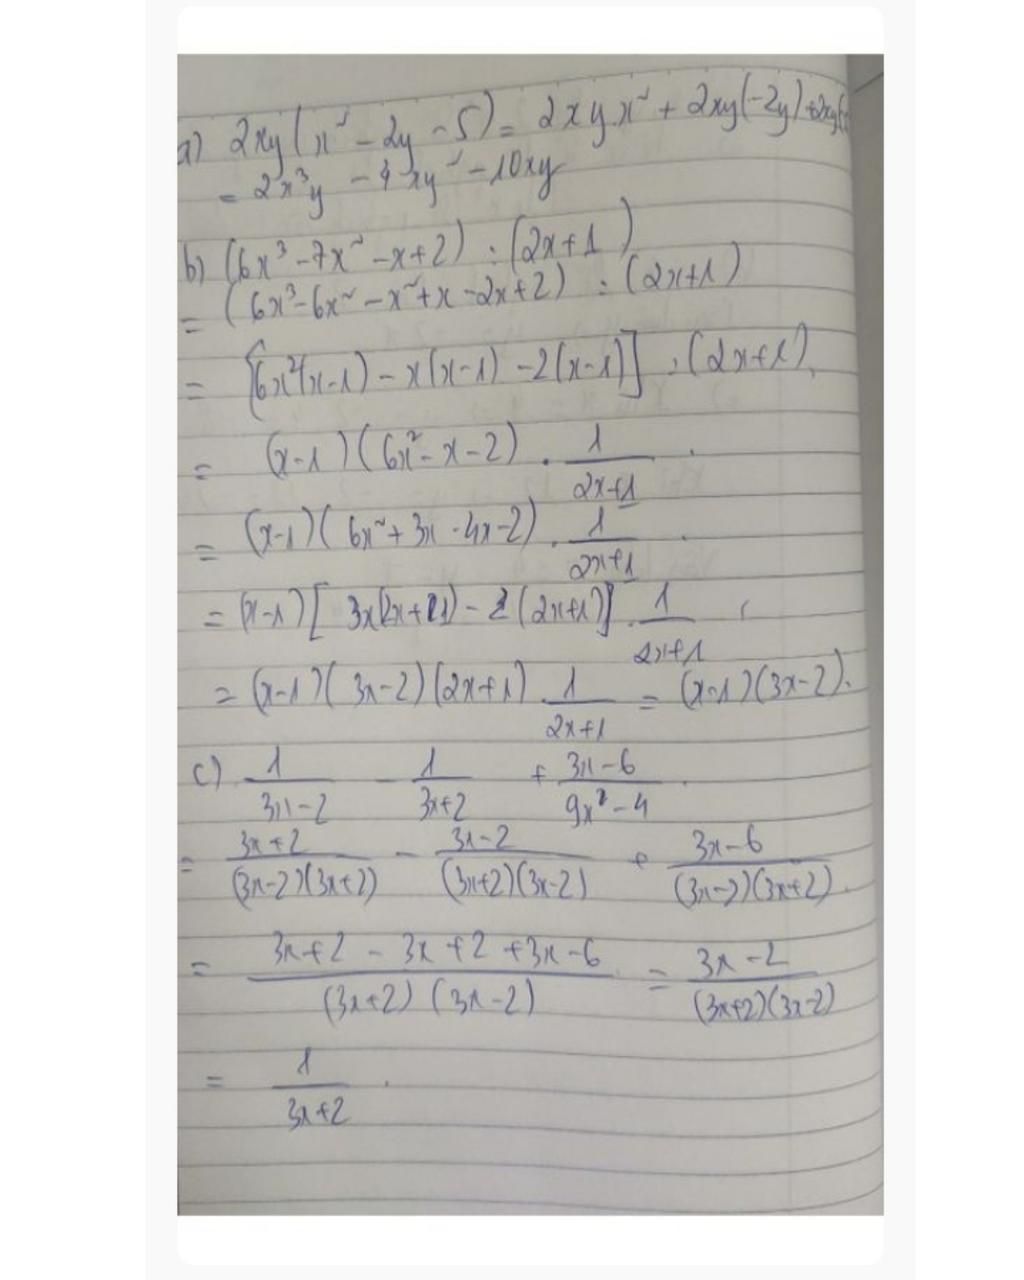 a) 2xy(x² - 2y - 5) = 2xy.x² + 2xy(-2y) + 2xy(
= 2x³y - 4xy² - 10xy
b) (6x³ - 7x² - x + 2) : (2x + 1)
= (6x³ - 6x² - x² + x - 2x + 2) : (2x + 1)
= [6x²(x - 1) - x(x - 1) - 2(x - 1)] : (2x + 1)
= (x - 1)(6x² - x - 2) . 1/(2x + 1)
= (x - 1)(6x² + 3x - 4x - 2) . 1/(2x + 1)
= (x - 1)[3x(2x + 1) - 2(2x + 1)] . 1/(2x + 1)
= (x - 1)(3x - 2)(2x + 1) . 1/(2x + 1) = (x - 1)(3x - 2).
c) 1/(3x - 2) - 1/(3x + 2) + (3x - 6)/(9x² - 4)
= (3x + 2)/((3x - 2)(3x + 2)) - (3x - 2)/((3x + 2)(3x - 2)) + (3x - 6)/((3x - 2)(3x + 2))
= (3x + 2 - 3x + 2 + 3x - 6)/((3x + 2)(3x - 2)) = (3x - 2)/((3x + 2)(3x - 2))
= 1/(3x + 2) .